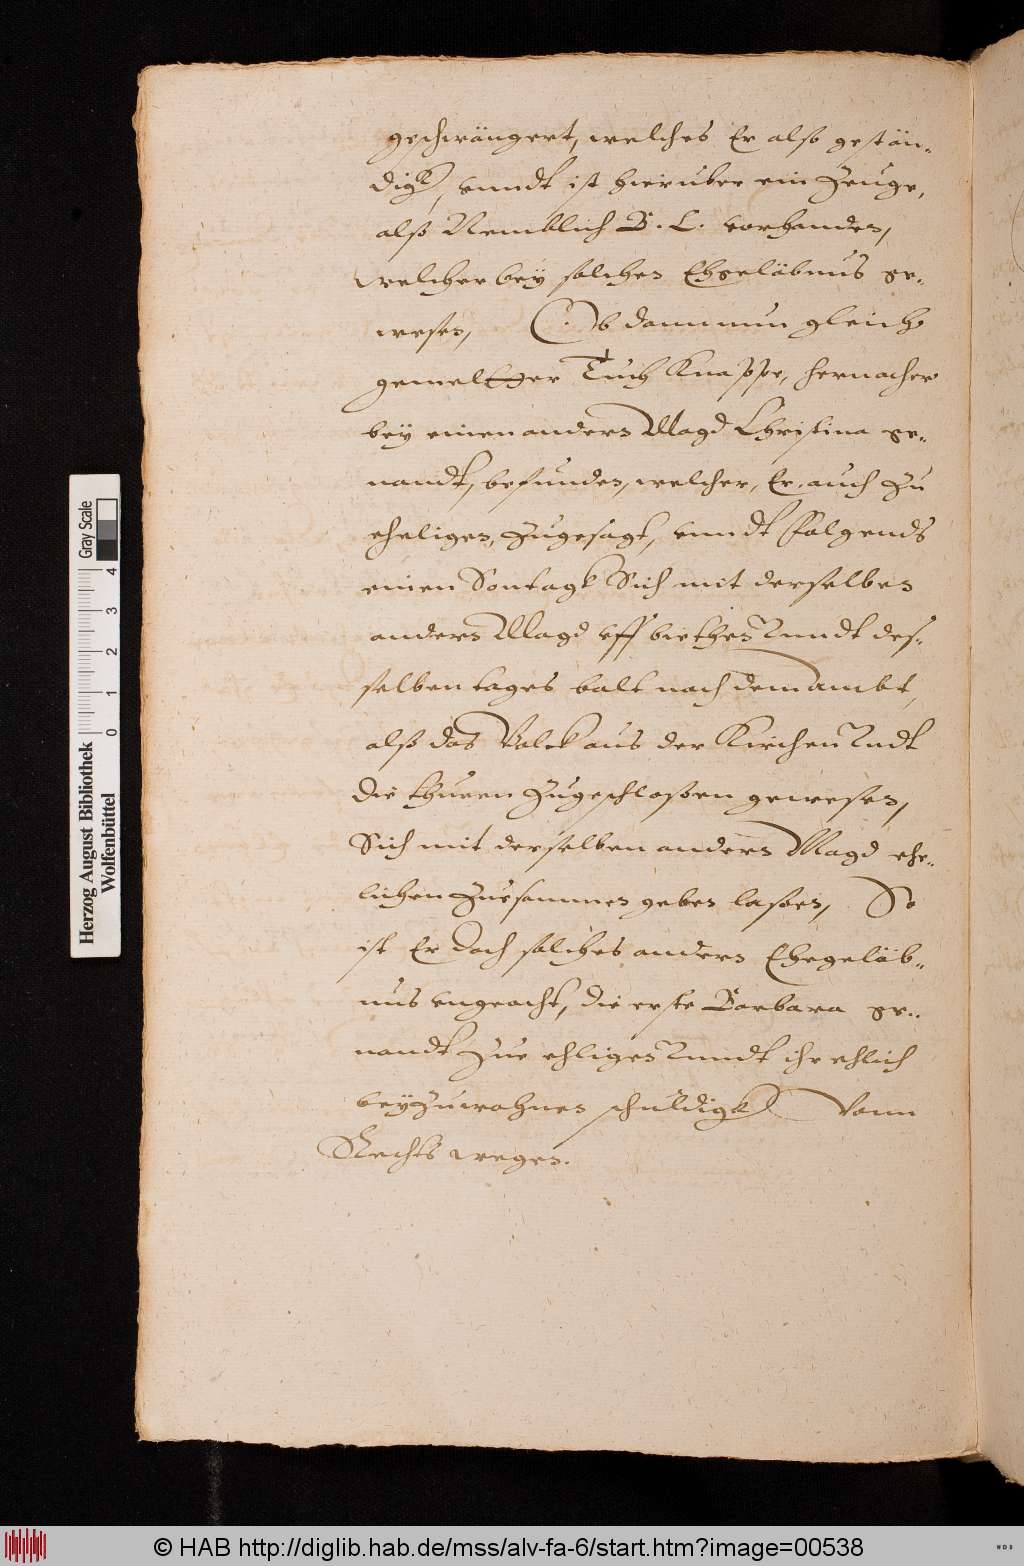 geschwängert, welches Er also gestän-
digk, vnndt ist hierüber ein Zeuge,
alß Nemblich B. L. vorhanden,
welcher bey solchen Ehgelöbnus ge-
wesen, Ob dann nun gleich
gemelter Tuch Knappe, hernacher
bey einen andern Magd Christina ge-
nandt, befunden, welcher, Er, auch zu
eheligen, zugesagt, vnndt Folgends
einen Sontagk Sich mit derselben
andern Magd vff biethen Vnndt des-
selben tages balt nach dem ambt,
alß das Volck aus der Kirchen Vndt
die thüren zugeschloßen gewesen,
Sich mit derselben andern Magd ehe-
lichen zuesammen geben laßen, So
ist Er doch solches andern Ehegelöb-
nus vngeacht, die erste Barbara ge-
nandt zue ehligen Vnndt ihr ehlich
beyzuwohnen schuldigk Vonn
Rechts wegen.
Gray Scale
0 1 2 3 4
Herzog August Bibliothek
Wolfenbüttel
© HAB http://diglib.hab.de/mss/alv-fa-6/start.htm?image=00538